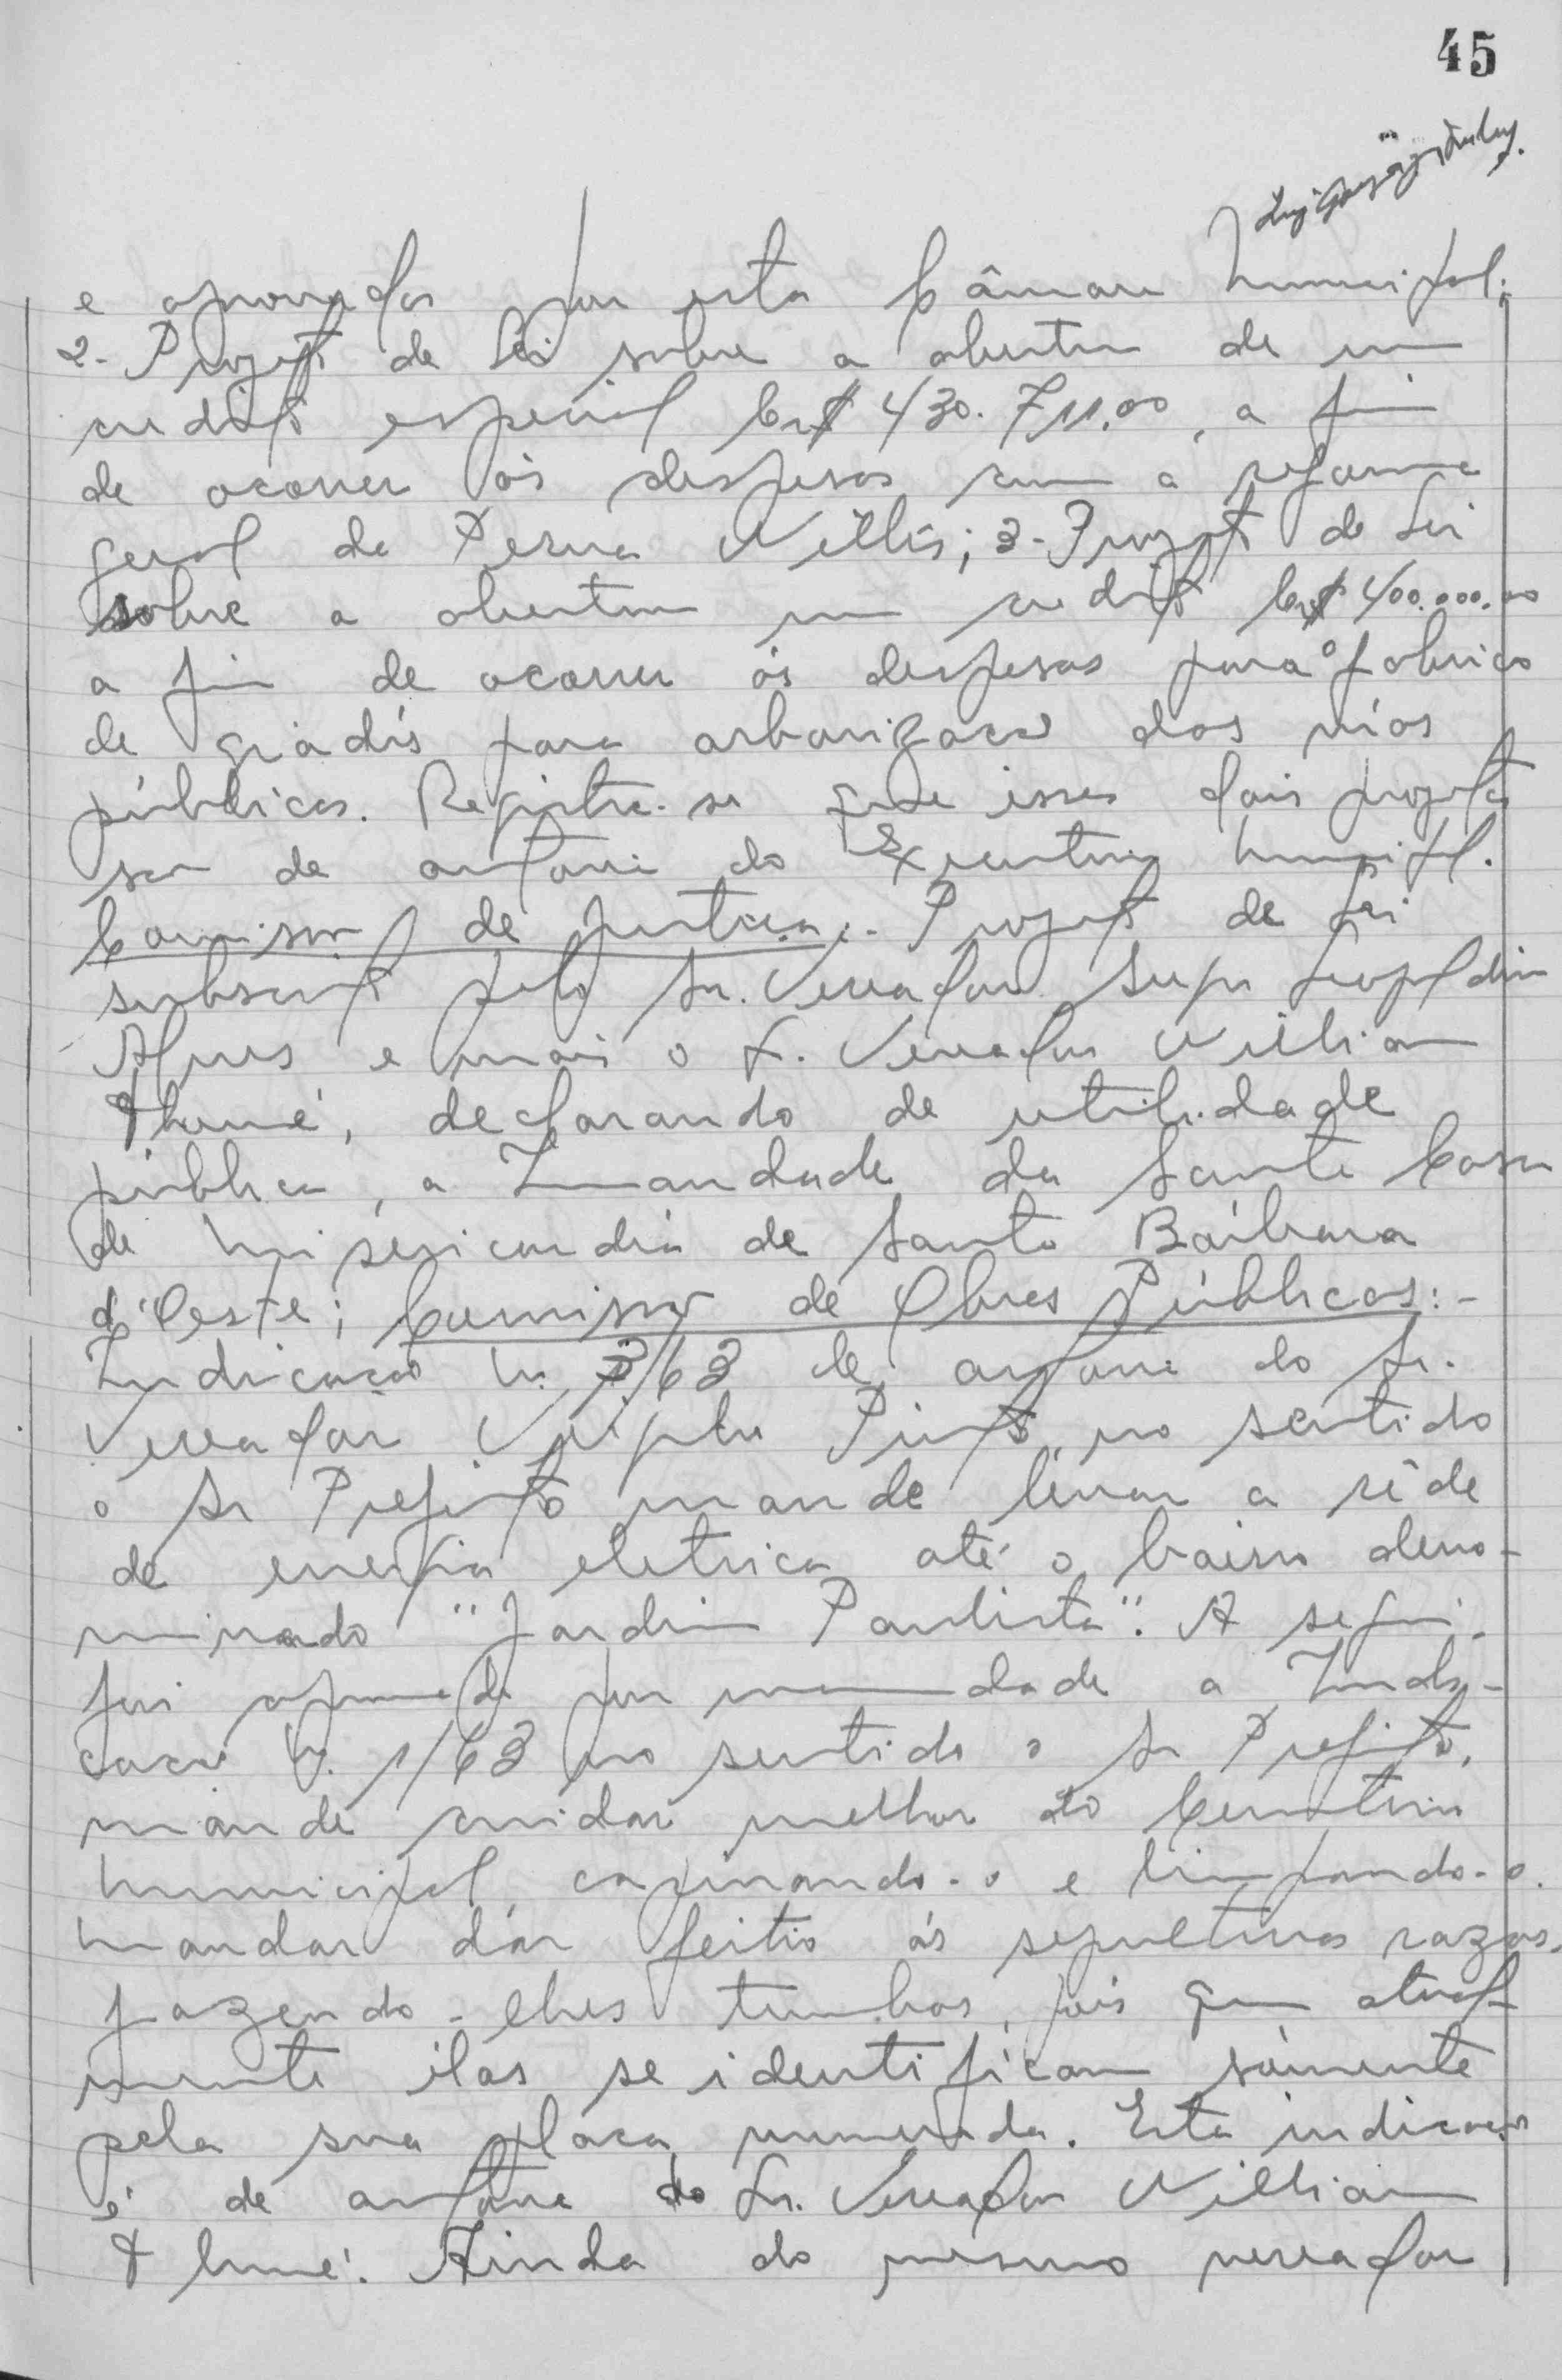 45
e aprovados por esta Câmara Municipal;
2- Projeto de Lei sobre a abertura de um
credito especial Cr$ 430.711,00, a fim
de ocorrer ás despesas com a reforma
geral da Perua Willis; 3- Projeto de Lei
sobre a abertura um credito Cr$ 400.000,00
a fim de ocorrer ás despesas para a fabrico
de gradis para arborização das vias
públicas. Registra-se que esses dois projetos
são de autoria do Executivo Municipal.
Comissão de Justiça:- Projeto de Lei
subscrito pelo Sr. Vereador Leopoldino
Alves e mais o Sr. Vereador Willian
Thomé, declarando de utilidade
pública, a Irmandade da Santa Casa
de Misericordia de Santa Bárbara
d'Oeste; Comissão de Obras Públicas:-
Indicação N. 3/63 de autoria do Sr.
Vereador Pinto, no sentido
o Sr Prefeito mande levar a rêde
de energia eletrica até o bairro deno-
minado "Jardim Paulista". A seguir
foi aprovada por unanimidade a Indi-
cação N. 1/63 no sentido o Sr Prefeito,
mande cuidar melhor do Cemiterio
Municipal, carpinando-o e limpando-o.
Mandar dár feitio ás sepulturas razas,
fazendo-lhes tumbas, pois que atual-
mente elas se identificam sómente
pela sua placa numerada. Esta indicação
é de autoria do Sr. Vereador Willian
Thomé. Ainda do mesmo vereador